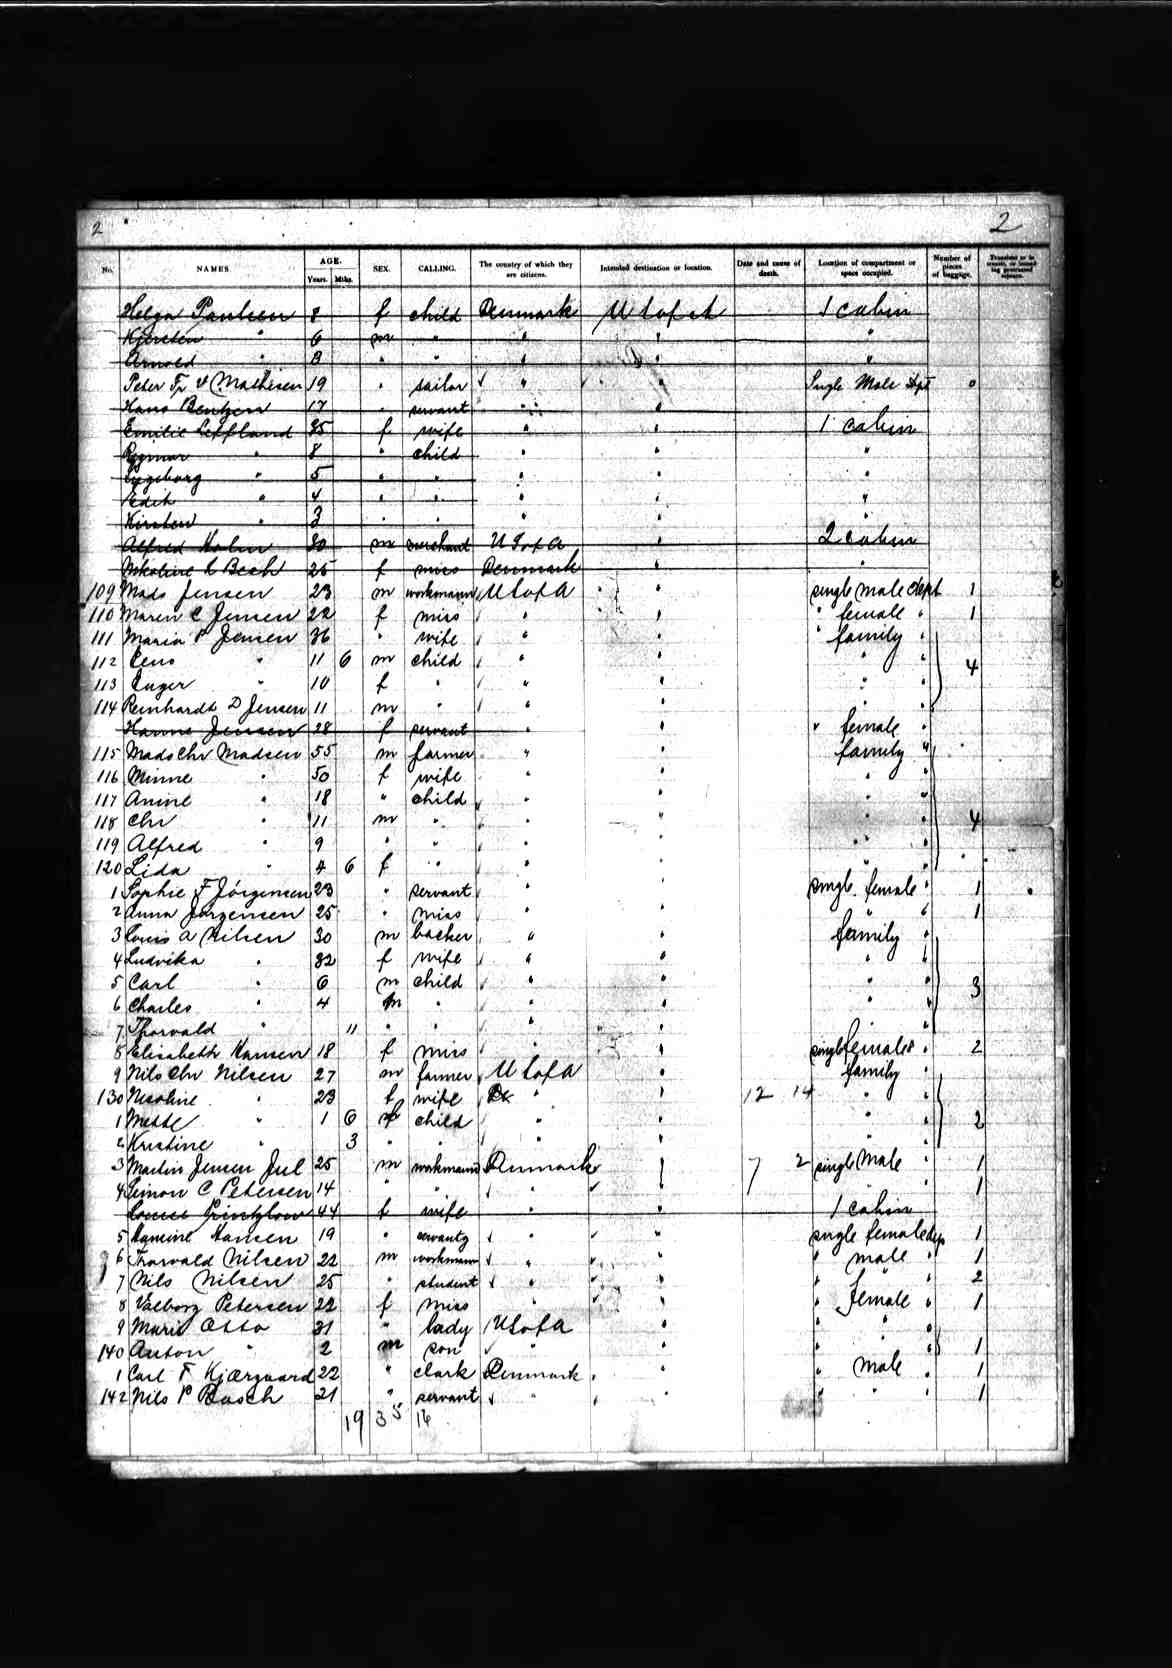 2 2
No. NAMES AGE. Years. Mths. SEX. CALLING. The country of which they are citizens. Intended destination or location. Date and cause of death. Location of compartment or space occupied. Number of pieces of baggage.
Helga Paulsen 8 f child Denmark U S of A 1 cabin
Kjersten " 6 m " " " "
Arnold " 3 " " " " "
Peter Fr V Mathesen 19 " sailor " " Single Male dept 0
Hans Bentzen 17 " servant " "
Emilie Leffland 35 f wife " " 1 cabin
Ragmar " 8 " child " " "
Ingeborg 5 " " " " "
Edith " 4 " " " " "
Kirsten " 3 " " " " "
Alfred Holm 30 m merchant U S of A " 2 cabin
Nikoline L Bech 25 f miss Denmark " "
109 Mads Jensen 23 m workmann U S of A " single male dept 1
110 Maren C Jensen 22 f miss " " " female " 1
111 Maria P Jensen 36 " wife " " " family "
112 Jens " 11 6 m child " " " " 4
113 Inger " 10 f " " " " "
114 Reinhardt D Jensen 11 m " " " " "
Hanne Jensen 28 f servant " " " female "
115 Mads Chr Madsen 55 m farmer " " family "
116 Minne " 50 f wife " " " "
117 Anine " 18 " child " " " "
118 Chr " 11 m " " " " " 4
119 Alfred " 9 " " " " " "
120 Lida " 4 6 f " " " " "
1 Sophie F Jörgensen 23 " servant " " single female " 1
2 Anna Jørgensen 25 " miss " " " " 1
3 Louis A Nilsen 30 m backer " " family "
4 Ludvika " 32 f wife " " " "
5 Carl " 6 m child " " " " 3
6 Charles " 4 m " " " " "
7 Thorvald " 11 " " " " " "
8 Elisabeth Hansen 18 f miss " " single female " 2
9 Nils Chr Nilsen 27 m farmer U S of A " family
130 Nicoline " 23 f wife " " 12 14 " "
1 Mette " 1 6 f child " " " " 2
2 Kristine " 3 " " " " " "
3 Martin Jensen Jul 25 m workmann Denmark 7 2 single Male " 1
4 Simon C Petersen 14 " " " " " 1
Louise Printzlow 44 f wife " " 1 cabin
5 Hansine Hansen 19 " servant " " single female dep 1
6 Trorvald Nilsen 22 m workmann " " " male " 1
7 Nils Nilsen 25 " student " " " " " 2
8 Valborg Petersen 22 f miss " " " female " 1
9 Marie Otto 31 " lady U S of A " " " "
140 Anton " 2 m son " " " " " 1
1 Carl F Kjærgaard 22 " clark Denmark " " male " 1
142 Nils P Basch 21 " servant " " " " 1
19 35 16